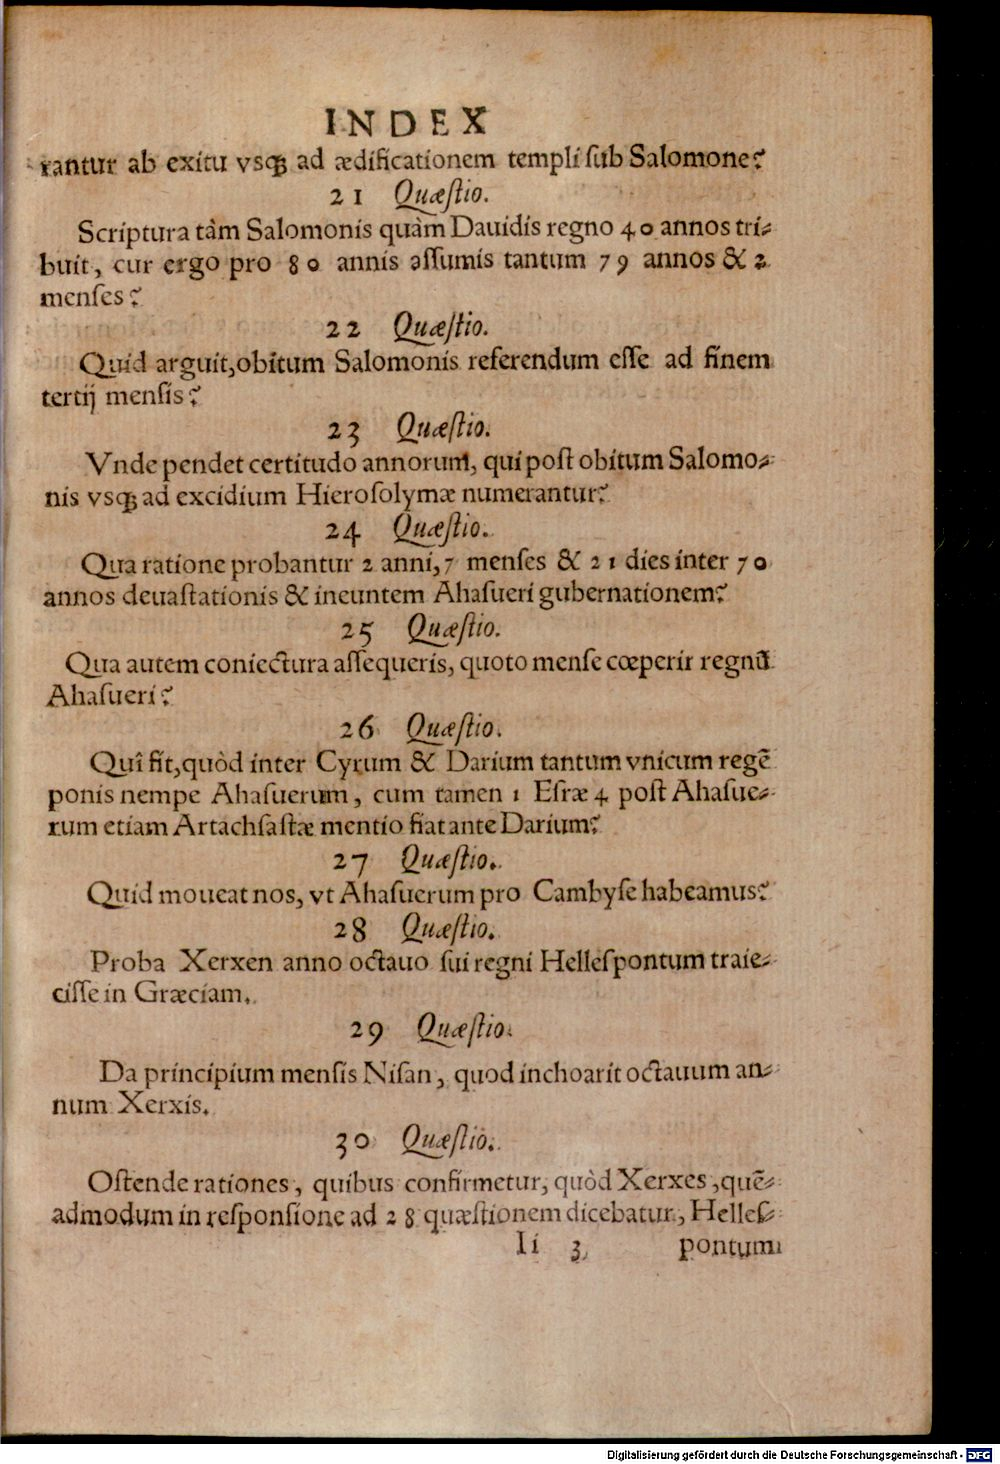 INDEX
rantur ab exitu vsq́ꝫ ad ædificationem templi ſub Salomone?
21 Quæſtio.
Scriptura tàm Salomonis quàm Dauidis regno 40 annos tri⸗
buit, cur ergo pro 80 annis aſſumis tantum 79 annos & 2
menſes?
22 Quæſtio.
Quid arguit, obitum Salomonis referendum eſſe ad finem
tertij menſis?
23 Quæſtio.
Vnde pendet certitudo annorum, qui poſt obitum Salomo⸗
nis vsq́ꝫ ad excidium Hieroſolymæ numerantur?
24 Quæſtio.
Qua ratione probantur 2 anni, 7 menſes & 21 dies inter 70
annos deuaſtationis & ineuntem Ahaſueri gubernationem?
25 Quæſtio.
Qua autem coniectura aſſequeris, quoto menſe cœperir regnū
Ahaſueri?
26 Quæſtio.
Quî fit, quòd inter Cyrum & Darium tantum vnicum regē
ponis nempe Ahaſuerum, cum tamen 1 Eſræ 4 poſt Ahaſue⸗
rum etiam Artachſaſtæ mentio fiat ante Darium?
27 Quæſtio.
Quid moueat nos, vt Ahaſuerum pro Cambyſe habeamus?
28 Quæſtio.
Proba Xerxen anno octauo ſui regni Helleſpontum traie⸗
ciſſe in Græciam.
29 Quæſtio.
Da principium menſis Niſan, quod inchoarit octauum an⸗
num Xerxis.
30 Quæſtio.
Oſtende rationes, quibus confirmetur, quòd Xerxes, quē⸗
admodum in reſponſione ad 28 quæſtionem dicebatur, Helleſ⸗
Ii 3 pontum
Digitalisierung gefördert durch die Deutsche Forschungsgemeinschaft - DFG